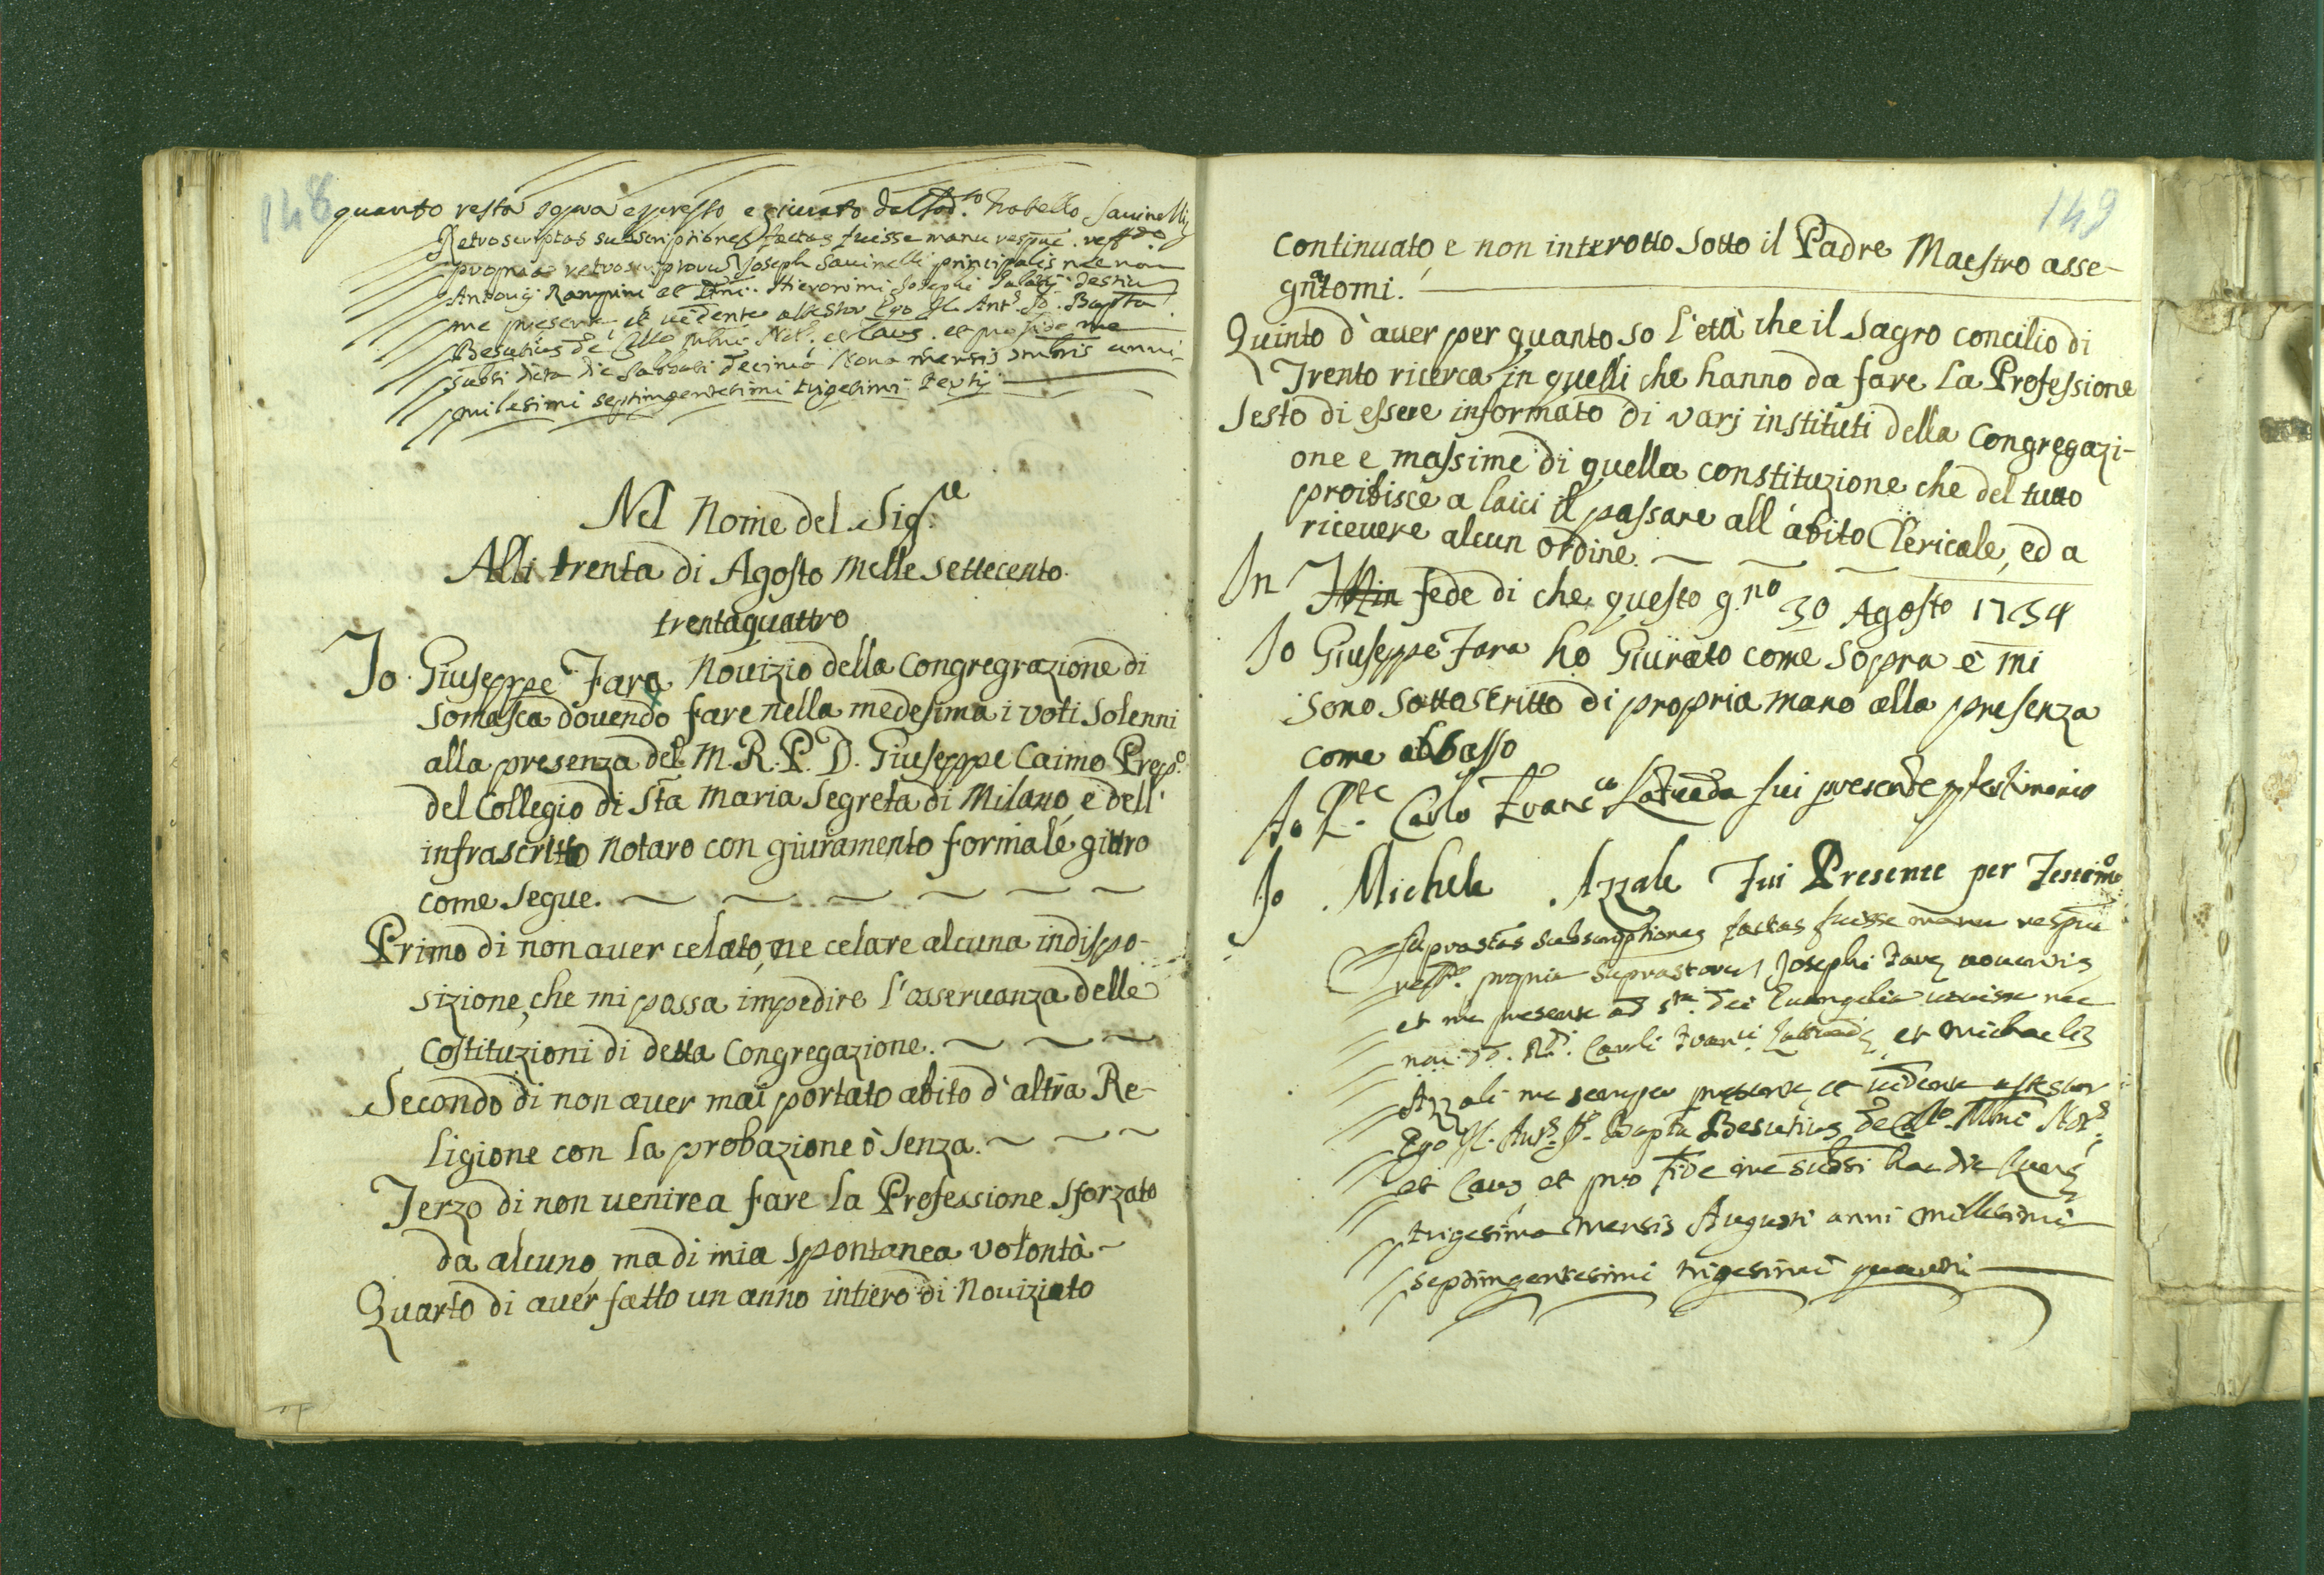 148
quanto resta sopra espresso e giurato dal sod.to fratello Savinelli
Retroscriptas subscriptiones factas fuisse manu respue. reff.do
propria retros Joseph Savinelli principalis necnon
Antonij Rampini et Dni. Hieronimi Josephi
me presente et vidente attestor Ego Jo. Bapta
Besutius de et Caus. et pro fide me
subsi dicta die Sabbati Decima Nona mensis anni
milesimi septingentesimi trigesimi tertij
Nel Nome del Sig.re
Alli trenta di Agosto Mille settecento
trentaquattro
Io Giuseppe Fara Novizio della Congregrazione di
Somasca dovendo fare nella medesima i voti solenni
alla presenza del M. R. P. D. Giuseppe Caimo Prep.o
del Collegio di Sta Maria Segreta di Milano, e dell'
infrascritto Notaro con giuramento formale giuro
come segue.
Primo di non aver celato, ne celare alcuna indispo-
sizione, che mi possa impedire l'osservanza delle
Costituzioni di detta Congregazione.
Secondo di non aver mai portato abito d'altra Re-
ligione con la probazione ò senza.
Terzo di non venire a fare la Professione sforzato
da alcuno ma di mia spontanea volontà
Quarto di aver fatto un anno intiero di Noviziato
149
continuato, e non interotto sotto il Padre Maestro asse-
gnatomi.
Quinto d'aver per quanto so l'età che il sagro concilio di
Trento ricerca in quelli che hanno da fare la Professione
Sesto di essere informato di varj instituti della Congregazi-
one e massime di quella constituzione che del tutto
proibisce a laici il passare all'abito Clericale, ed a
ricevere alcun ordine.
In fede di che questo g.no 30 Agosto 1734
Io Giuseppe Fara ho Giurato come sopra e mi
sono sottoscritto di propria mano alla presenza
come abbasso
Io P.te Carlo Franc.co Latuada fui presente p testimonio
Io Michele Azzale Fui Presente per Testimo.
Suprastas subscriptiones factas fuisse manu respue
reff.e propria suprastorum Josephi Fare novitij
et me presente ad s.ta Dei Evangelia iurasse nec
non DD. R.di Caroli Franci Latuade, et Michaelis
Azzali me semper presente et vidente attestor
Ego Jo. Bapta Besutius de Coll.o Mlni Not.s
et Caus et pro fide me subsi hac die Lune
trigesima mensis Augusti anni millesimi
septingentesimi trigesimi quarti